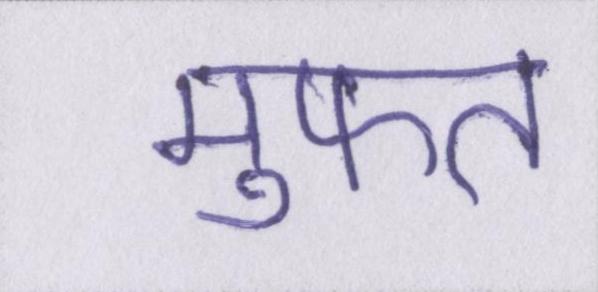 मुफत